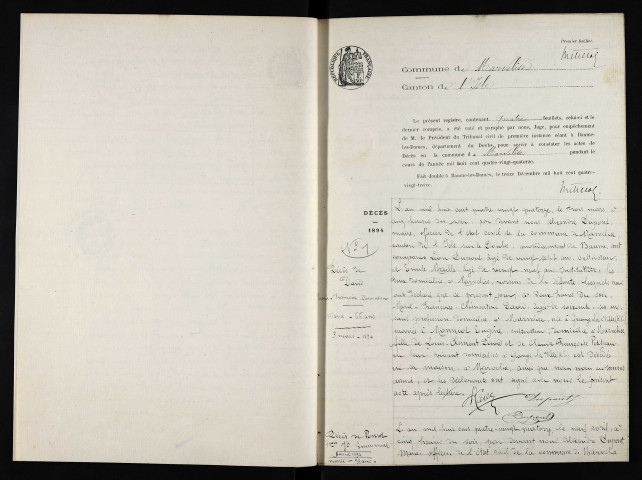 Premier feuillet.
Commune de Marvelise
Canton de l'Isle
RÉPUBLIQUE FRANÇAISE
Le présent registre, contenant quatre feuillets, celui-ci et le
dernier compris, a été coté et paraphé par nous, Juge, pour empêchement
de M. le Président du Tribunal civil de première instance séant à Baume-
les-Dames, département du Doubs, pour servir à constater les actes de
Décès en la commune de Marvelise pendant le
cours de l'année mil huit cent quatre-vingt-quatorze.
Fait double à Baume-les-Dames, le treize Décembre mil huit cent quatre-
vingt-treize.
DÉCÈS
1894
N° 1
Décès de
66 ans
3 mars 1894
L'an mil huit cent quatre vingt quatorze, le trois mars, à
cinq heures du soir, par devant nous Alexandre Dupont
maire, officier de l'état civil de la commune de Marvelise
canton de l'Isle sur le Doubs, arrondissement de Baume, ont
comparu Léon Dupont âgé de vingt sept ans, cultivateur,
et Emile âgé de vingt neuf ans, instituteur,
tous domiciliés à Marvelise, lesquels nous
ont déclaré que ce présent jour, à heures du soir,
Marie Françoise Clémentine âgée de soixante six ans
profession domiciliée à Marvelise, née à
mariée à Eugène, cultivateur, domicilié à Marvelise
fille de Louis et de Claude Françoise
en leur vivant domiciliés à est décédée
en sa maison, à Marvelise, ainsi que nous nous en sommes
assuré, et les déclarants ont signé avec nous le présent
acte après lecture.
Dupont
Dupont
Décès de
L'an mil huit cent quatre-vingt quatorze, le neuf avril, à
cinq heures du soir, par devant nous Alexandre Dupont
Maire officier de l'Etat civil de la commune de Marvelise